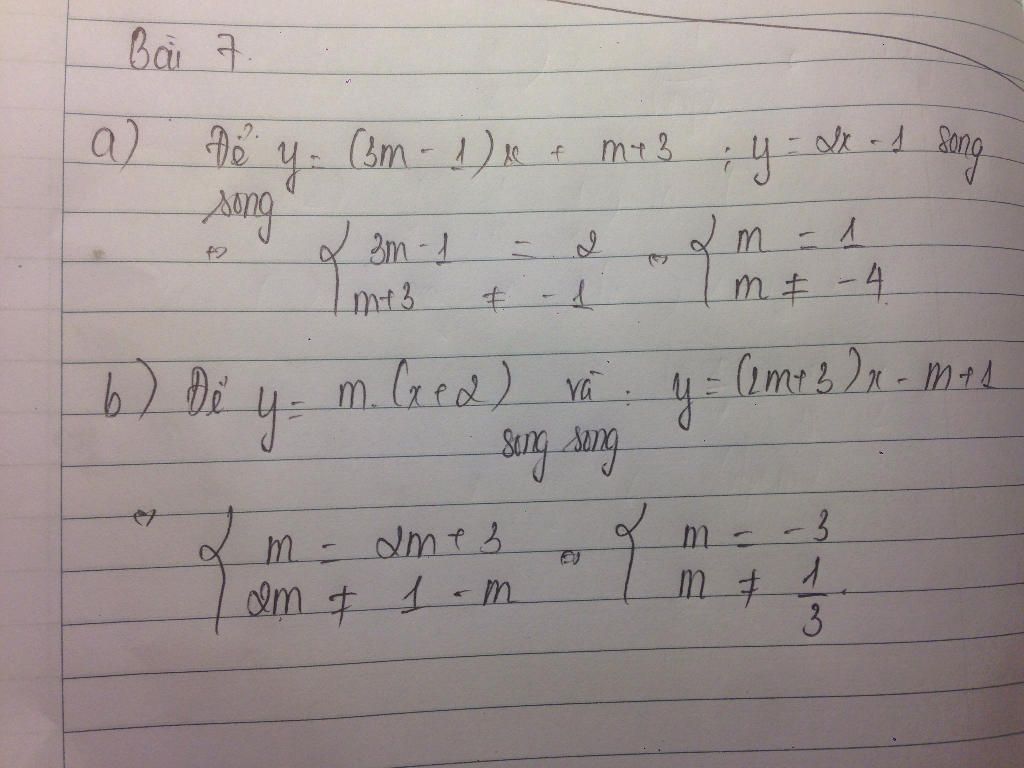 Bài 7.
a) Để y = (3m - 1)x + m+3 ; y = 2x - 1 song
song
⇔ { 3m - 1 = 2 ⇔ { m = 1
m+3 ≠ -1 m ≠ -4
b) Để y = m.(x+2) và : y = (2m+3)x - m+1
song song
⇔ { m = 2m+3 ⇔ { m = -3
2m ≠ 1 - m m ≠ 1/3.